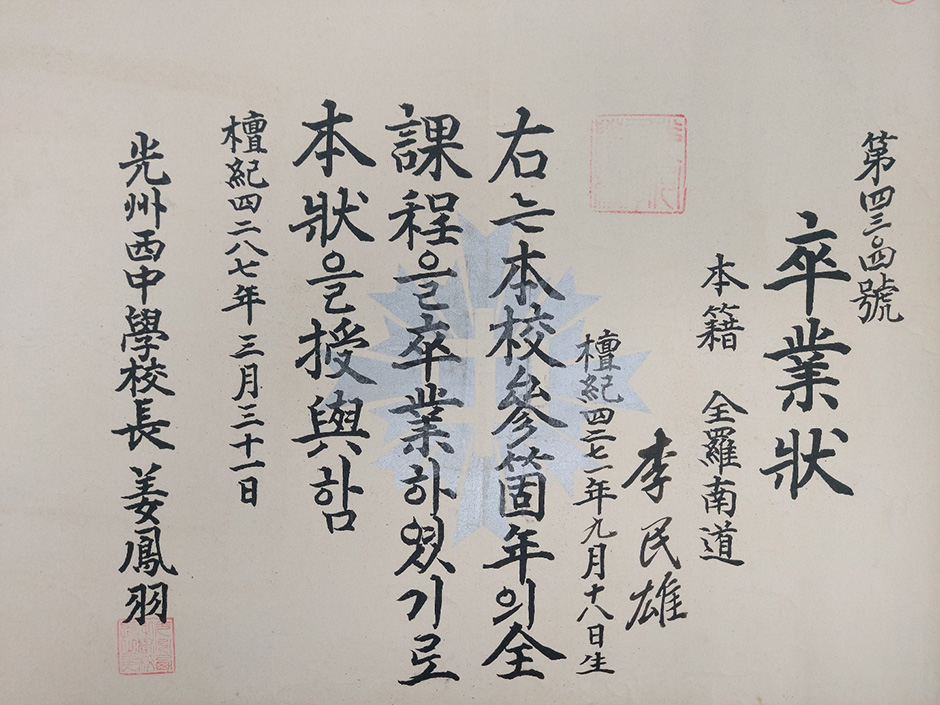 第四三〇四號
卒業狀
本籍 全羅南道
李民雄
檀紀四二七一年九月十八日生
右는本校參箇年의全
課程을卒業하였기로
本狀을授與함
檀紀四二八七年三月三十一日
光州西中學校長 姜鳳羽